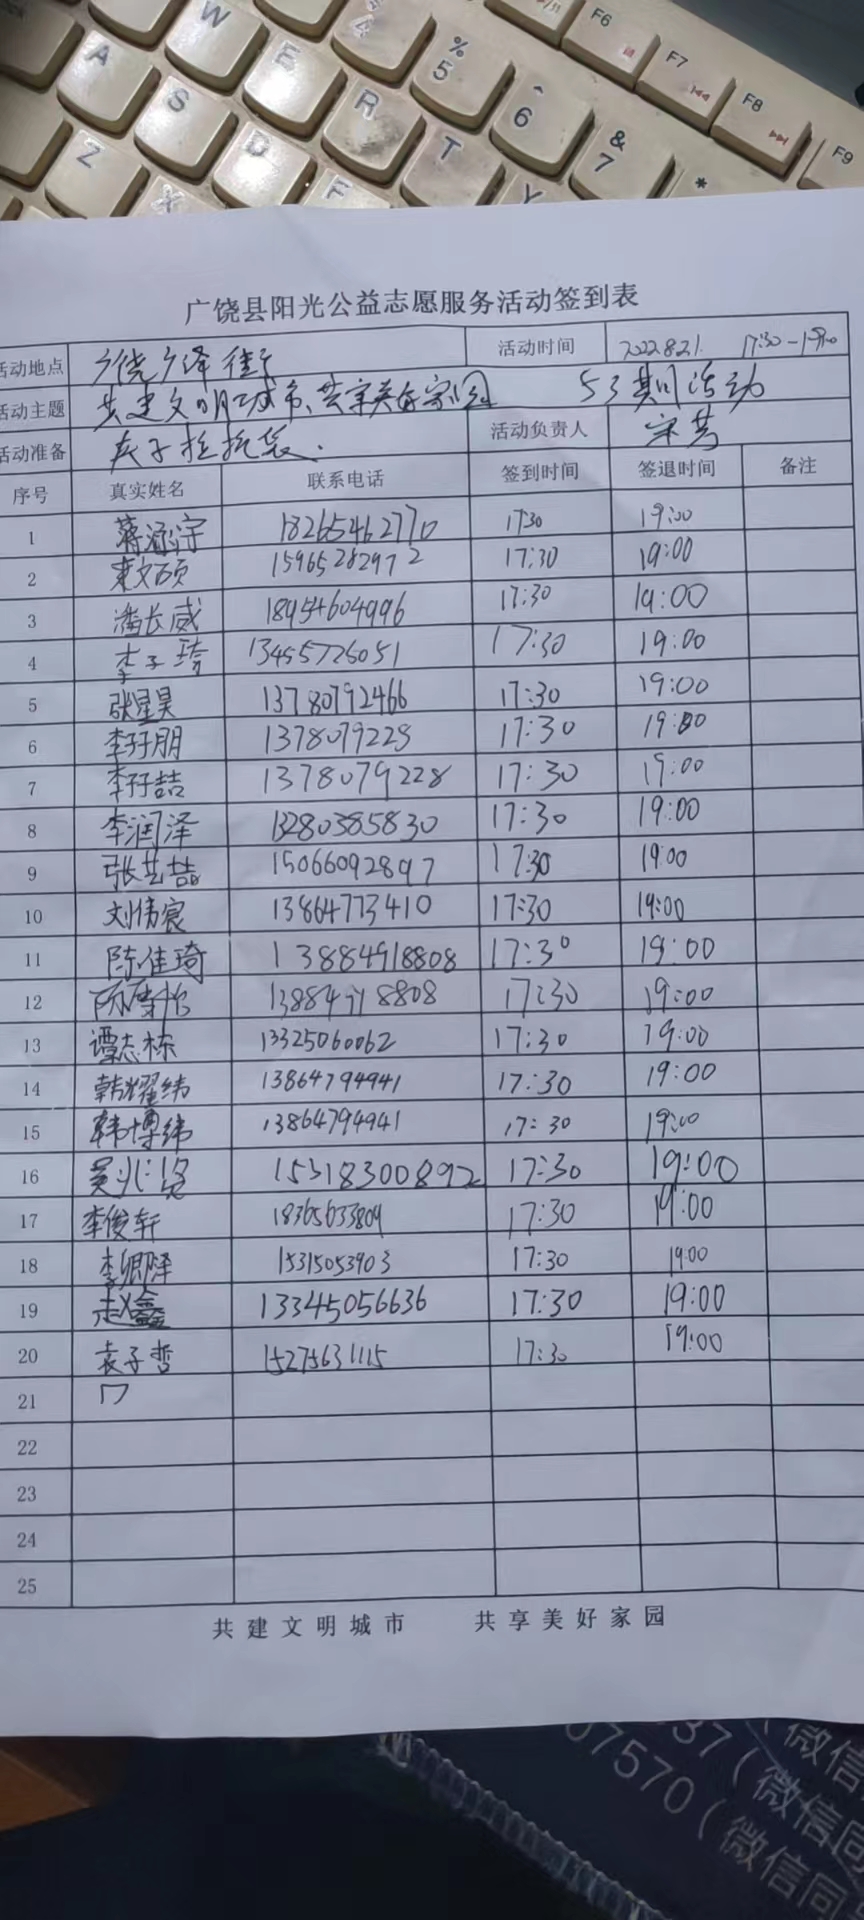 W
4
%
5
^
6
&
7
*
F6
F7
F8
F9
A
S
E
R
T
Y
Z
X
D
F
广饶县阳光公益志愿服务活动签到表
活动地点 广饶广泽街 活动时间 2022.8.21. 17:30-19:00
活动主题 共建文明城市、共享美好家园 53期活动
活动准备 夹子垃圾袋. 活动负责人 宋芳
序号 真实姓名 联系电话 签到时间 签退时间 备注
1 蒋涵宇 18265462770 17:30 19:00
2 15965282972 17:30 19:00
3 潘长威 18954604996 17:30 19:00
4 李子琦 13455726051 17:30 19:00
5 张星昊 13780792466 17:30 19:00
6 李孖朋 1378079228 17:30 19:00
7 李孖喆 1378079228 17:30 19:00
8 李润泽 13280385830 17:30 19:00
9 张艺喆 15066092897 17:30 19:00
10 刘倚宸 13864773410 17:30 19:00
11 陈佳琦 138884918808 17:30 19:00
12 13884918808 17:30 19:00
13 谭志栋 13325060062 17:30 19:00
14 韩耀纬 13864794941 17:30 19:00
15 韩博纬 13864794941 17:30 19:00
16 15318300892 17:30 19:00
17 李俊轩 18365633804 17:30 19:00
18 李卿泽 15315053903 17:30 19:00
19 赵鑫 13345056636 17:30 19:00
20 袁子哲 15275631115 17:30 19:00
21
22
23
24
25
共建文明城市 共享美好家园
微信
37（微信同
07570（微信同